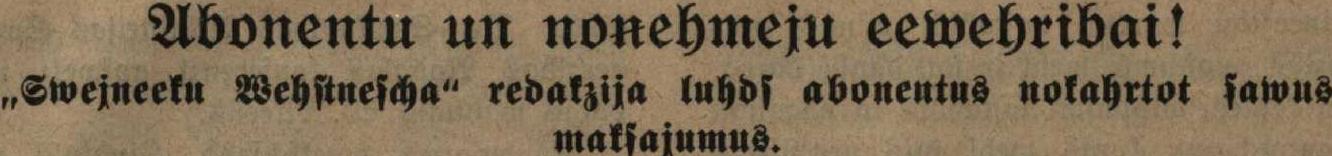 Abonentu un noņehmeju eewehribai!
„Swejneeku Wehſtneſcha“ redakzija luhdſ abonentus nokahrtot ſawus
makſajumus.